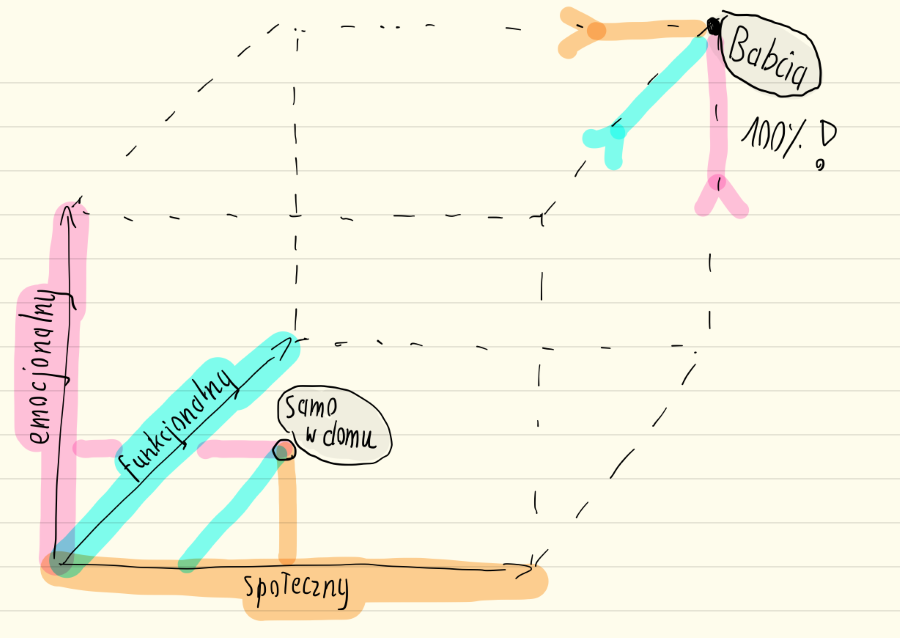 Babcia
100% !
emocjonalny
funkcjonalny
samo
w domu
społeczny